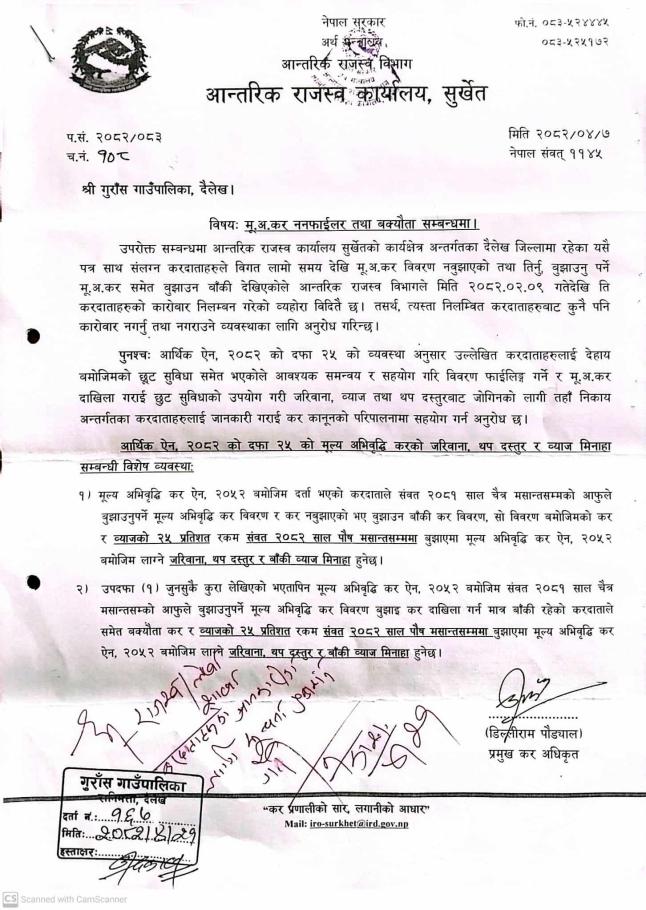 नेपाल सरकार
अर्थ मन्त्रालय
आन्तरिक राजस्व विभाग
आन्तरिक राजस्व कार्यालय, सुर्खेत
फो.नं. ०८३-५२४४४५
०८३-५२५१७२
प.सं. २०८२/०८३
च.नं. १०८
मिति २०८२/०४/७
नेपाल संवत् ११४५
श्री गुराँस गाउँपालिका, दैलेख।
विषयः मू.अ.कर ननफाईलर तथा बक्यौता सम्बन्धमा।
उपरोक्त सम्बन्धमा आन्तरिक राजस्व कार्यालय सुर्खेतको कार्यक्षेत्र अन्तर्गतका दैलेख जिल्लामा रहेका यसै
पत्र साथ संलग्न करदाताहरुले विगत लामो समय देखि मू.अ.कर विवरण नबुझाएको तथा तिर्नु, बुझाउनु पर्ने
मू.अ.कर समेत बुझाउन बाँकी देखिएकोले आन्तरिक राजस्व विभागले मिति २०८२.०२.०९ गतेदेखि ति
करदाताहरुको कारोबार निलम्बन गरेको व्यहोरा विदितै छ। तसर्थ, त्यस्ता निलम्वित करदाताहरुबाट कुनै पनि
कारोबार नगर्नु तथा नगराउने व्यवस्थाका लागि अनुरोध गरिन्छ।
पुनश्चः आर्थिक ऐन, २०८२ को दफा २५ को व्यवस्था अनुसार उल्लेखित करदाताहरुलाई देहाय
बमोजिमको छूट सुविधा समेत भएकोले आवश्यक समन्वय र सहयोग गरि विवरण फाईलिङ्ग गर्ने र मू.अ.कर
दाखिला गराई छुट सुविधाको उपयोग गरी जरिवाना, व्याज तथा थप दस्तुरबाट जोगिनको लागी तहाँ निकाय
अन्तर्गतका करदाताहरुलाई जानकारी गराई कर कानूनको परिपालनामा सहयोग गर्न अनुरोध छ।
आर्थिक ऐन, २०८२ को दफा २५ को मूल्य अभिवृद्धि करको जरिवाना, थप दस्तुर र व्याज मिनाहा
सम्बन्धी विशेष व्यवस्थाः
१) मूल्य अभिवृद्धि कर ऐन, २०५२ बमोजिम दर्ता भएको करदाताले संवत २०८१ साल चैत्र मसान्तसम्मको आफुले
बुझाउनुपर्ने मूल्य अभिवृद्धि कर विवरण र कर नबुझाएको भए बुझाउन बाँकी कर विवरण, सो विवरण बमोजिमको कर
र व्याजको २५ प्रतिशत रकम संवत २०८२ साल पौष मसान्तसम्ममा बुझाएमा मूल्य अभिवृद्धि कर ऐन, २०५२
बमोजिम लाग्ने जरिवाना, थप दस्तुर र बाँकी व्याज मिनाहा हुनेछ।
२) उपदफा (१) जुनसुकै कुरा लेखिएको भएतापिन मूल्य अभिवृद्धि कर ऐन, २०५२ बमोजिम संवत २०८१ साल चैत्र
मसान्तसम्को आफुले बुझाउनुपर्ने मूल्य अभिवृद्धि कर विवरण बुझाइ कर दाखिला गर्न मात्र बाँकी रहेको करदाताले
समेत बक्यौता कर र व्याजको २५ प्रतिशत रकम संवत २०८२ साल पौष मसान्तसम्ममा बुझाएमा मूल्य अभिवृद्धि कर
ऐन, २०५२ बमोजिम लाग्ने जरिवाना, थप दस्तुर र बाँकी व्याज मिनाहा हुनेछ।
(डिल्लीराम पौड्याल)
प्रमुख कर अधिकृत
गुराँस गाउँपालिका
दैलेख
दर्ता नं.:
मितिः
हस्ताक्षरः
"कर प्रणालीको सार, लगानीको आधार"
Mail: iro-surkhet@ird.gov.np
CS Scanned with CamScanner